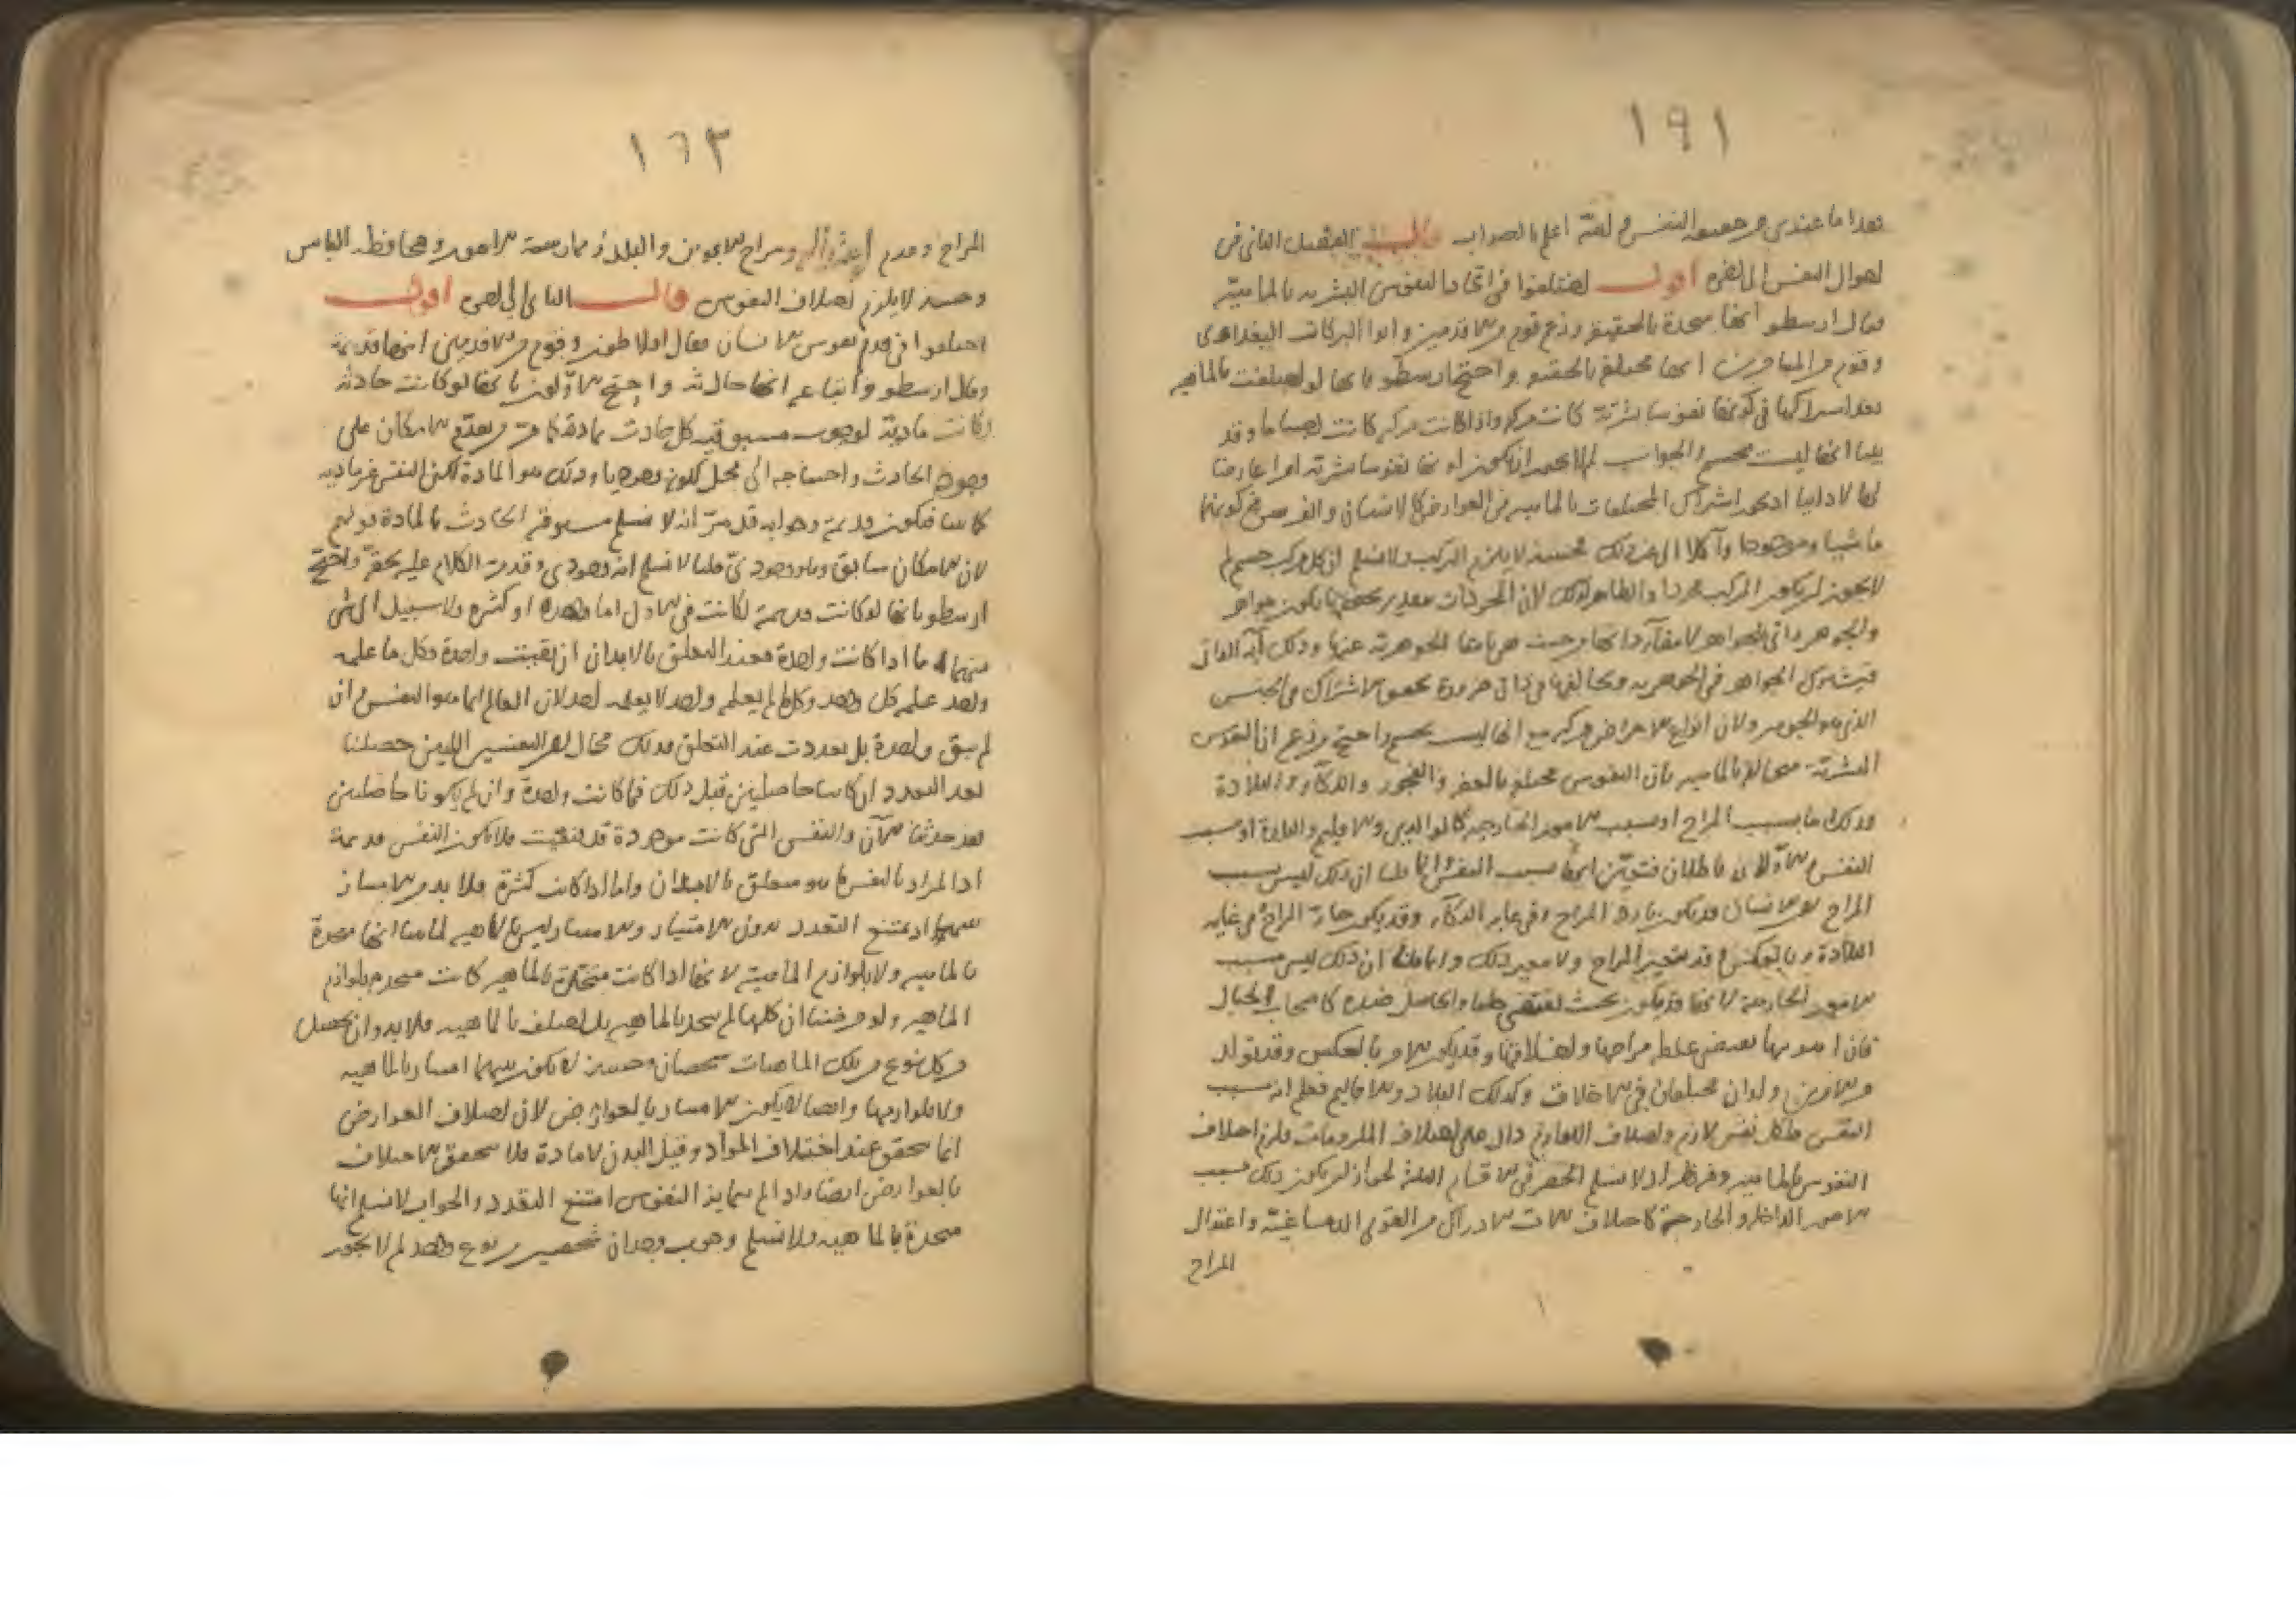 ١٩١
هذا ما عندى من حقيقة النفس والله اعلم بالصواب قال الفصل الثانى فى
احوال النفس الى اخره اقول اختلفوا فى اتحاد النفوس البشريه بالماهية
فقال ارسطو انها متحدة بالحقيقة وزعم قوم من الاقدمين وابو البركات البغدادى
وقوم من المتاخرين انها مختلفة بالحقيقة واحتج ارسطو بانها لو اختلفت بالماهيه
بعد اشتراكها فى كونها نفوسا بشرية كانت مركبة واذا كانت مركبة كانت اجساما وقد
بينا انها ليست بجسم والجواب لم لا يجوز ان يكون كونها نفوسا بشرية امرا عارضا
لها لا ذاتيا اذ يجوز اشتراك المختلفات بالماهيه فى العوارض كالانسان والفرس فى كونهما
ماشيا وموجودا وآكلا الى غير ذلك فحينئذ لا يلزم التركيب ولا نسلم ان كل مركب جسم لم
لا يجوز ان يكون المركب مجردا والظاهر ذلك لان المجردات بتقدير تحققها يكون جواهر
والجوهر ذاتى للجواهر
فيشترك الجواهر فى الجوهريه ويخالفها فى ذاتى ضرورة تحقق الاشتراك فى الجنس
الذى هو الجوهر ولان انواع الاعراض مركبة مع انها ليست بجسم واحتج من زعم ان النفوس
البشرية متخالفة بالماهيه بان النفوس مختلفة بالعفة والفجور والذكآء والبلادة
وذلك اما بسبب المزاج او بسبب الامور الخارجية كالوالدين والاقليم والعادة او بسبب
النفس والاولان باطلان فتعين انها بسبب النفس وانما قلنا ان ذلك ليس بسبب
المزاج لان الانسان قد يكون بارد المزاج وفى غاية الذكآء وقد يكون حار المزاج فى غاية
البلادة وبالعكس وقد يتغير المزاج ولا يتغير ذلك وانما قلنا ان ذلك ليس بسبب
الامور الخارجية لانها قد يكون بحيث تقتضى خلقا والحاصل ضده كاصحاب الجبال
فان اهويتها تقتضى غلظ مزاجها واخلاقها وقد يكون الامر بالعكس وقد يتولد
من الابوين ولدان مختلفان فى الاخلاق وكذلك البلاد والاقاليم فعلم انه بسبب
النفس فلكل نفس لازم واختلاف اللوازم دال على اختلاف الملزومات فلزم اختلاف
النفوس بالماهيه وفيه نظر اذ لا نسلم الحصر فى الاقسام الثلثة لجواز ان يكون ذلك بسبب
الامور الداخلة والخارجة كاختلاف آلات الادراك من القوى الدماغية واعتدال
المزاج
١٦٣
المزاج وعدم ومزاج الابوين والبلد وممارسة الامور ومحافظة الناس
وحينئذ لا يلزم اختلاف النفوس قال الثانى الى اخره اقول
اختلفوا فى قدم نفوس الانسان فقال افلاطون وقوم من الاقدمين انها قديمة
وقال ارسطو واتباعه انها حادثه واحتج الاولون بانها لو كانت حادثة
لكانت مادية لوجوب مسبوقية كل حادث بمادة كما مر من تقدم الامكان على
وجود الحادث واحتياجه الى محل لكونه وجوديا وذلك هو المادة لكن النفس غير ماديه
كما بينا فيكون قديمة وجوابه قد مر انه لا نسلم مسبوقية الحادث بالمادة قولهم
لان الامكان سابق وهو وجودى قلنا لا نسلم انه وجودى وقد مر الكلام عليه واحتج
ارسطو بانها لو كانت قديمة لكانت فى الازل اما واحدة او كثيرة ولا سبيل الى شى
منهما اما اذا كانت واحدة فعند التعلق بالابدان ان بقيت واحدة فكل ما علمه
واحد علمه كل واحد وكل ما لم يعلمه واحد لا يعلمه احد لان العالم انما هو النفس وان
لم يبق واحدة بل تعددت عند التعلق فذلك محال لان النفسين اللتين حصلتا
بعد التعدد ان كانتا حاصلتين قبل ذلك فما كانت واحدة وان لم يكونا حاصلتين
فقد حدثتا الآن والنفس التى كانت موجودة قد انتفت فلا يكون النفس قديمة
اذ المراد بالنفس ما هو متعلق بالابدان واما اذا كانت كثيرة فلا بد من الامتياز
بينهما اذ يمتنع التعدد بدون الامتياز والامتياز ليس بالماهيه لما بينا انها متحدة
بالماهيه ولا بلوازم الماهية لانها اذا كانت متحدة بالماهيه كانت متحدة بلوازم
الماهيه ولو فرضنا ان كلها لم يتحد بالماهيه بل اختلف بالماهيه فلا بد وان يحصل
من كل نوع من تلك الماهيات شخصان وحينئذ لا يكون بينهما امتياز بالماهيه
ولا بلوازمها وايضا لا يكون الامتياز بالعوارض لان اختلاف العوارض
انما يتحقق عند اختلاف المواد وقبل البدن لا مادة فلا يتحقق الاختلاف
بالعوارض ايضا واذا لم يتمايز النفوس امتنع التعدد والجواب لا نسلم انها
متحدة بالماهيه ولا نسلم وجوب وجدان شخصين من نوع واحد لم لا يجوز